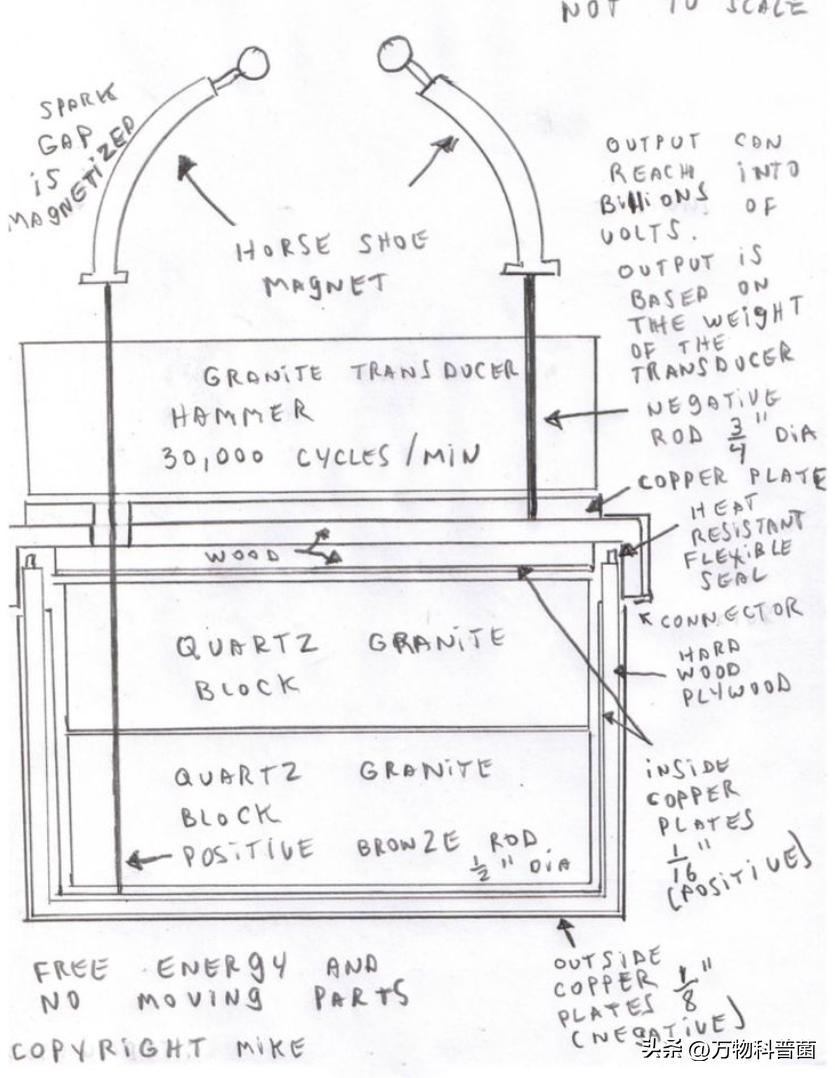 NOT TO SCALE
SPARK
GAP
iS
MAGNETIZED
HORSE SHOE
MAGNET
OUTPUT CAN
REACH INTO
BILLIONS OF
VOLTS.
OUTPUT IS
BASED ON
THE WEIGHT
OF THE
TRANSDUCER
GRANITE TRANSDUCER
HAMMER
30,000 CYCLES/MIN
NEGATIVE
ROD 3/4" DIA
COPPER PLATE
HEAT
RESISTANT
FLEXIBLE
SEAL
WOOD
CONNECTOR
HARD
WOOD
PLYWOOD
QUARTZ GRANITE
BLOCK
QUARTZ GRANITE
BLOCK
POSITIVE BRONZE ROD
1/2" DIA
INSIDE
COPPER
PLATES
1/16"
(POSITIVE)
OUTSIDE
COPPER 1/8"
PLATES
(NEGATIVE)
FREE ENERGY AND
NO MOVING PARTS
COPYRIGHT MIKE
头条 @万物科普菌